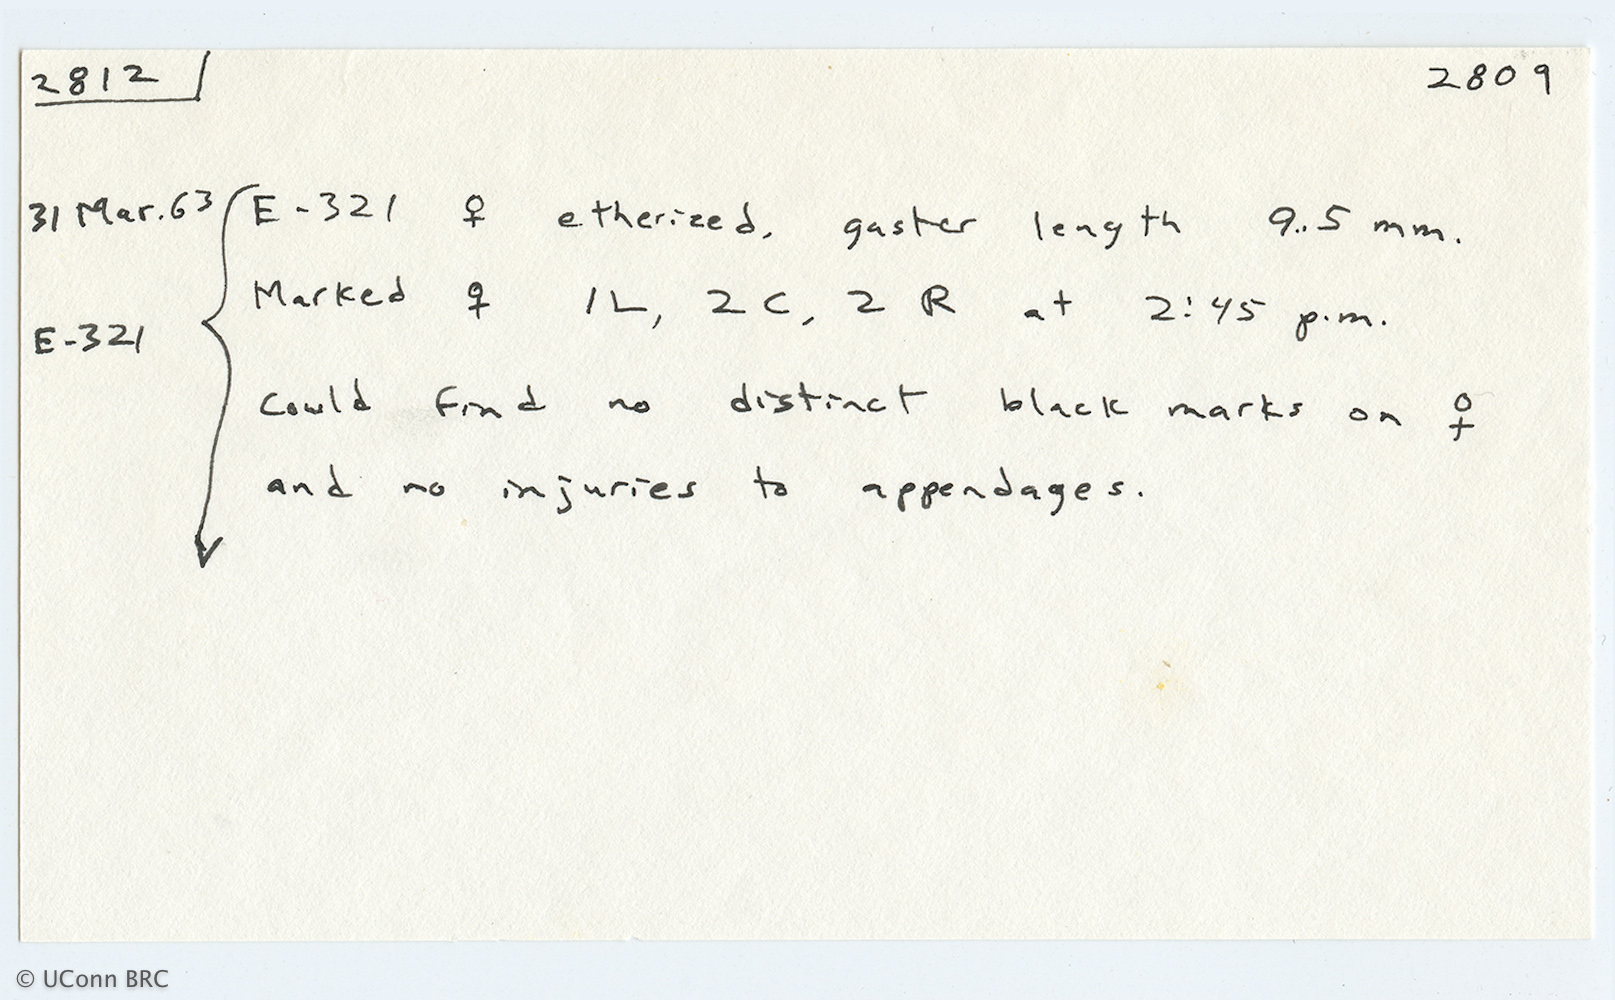 2812
2809
31 Mar. 63 E-321 ♀ etherized, gaster length 9.5 mm.
Marked ♀ 1L, 2C, 2R at 2:45 p.m.
E-321
Could find no distinct black marks on ♀
and no injuries to appendages.
© UConn BRC